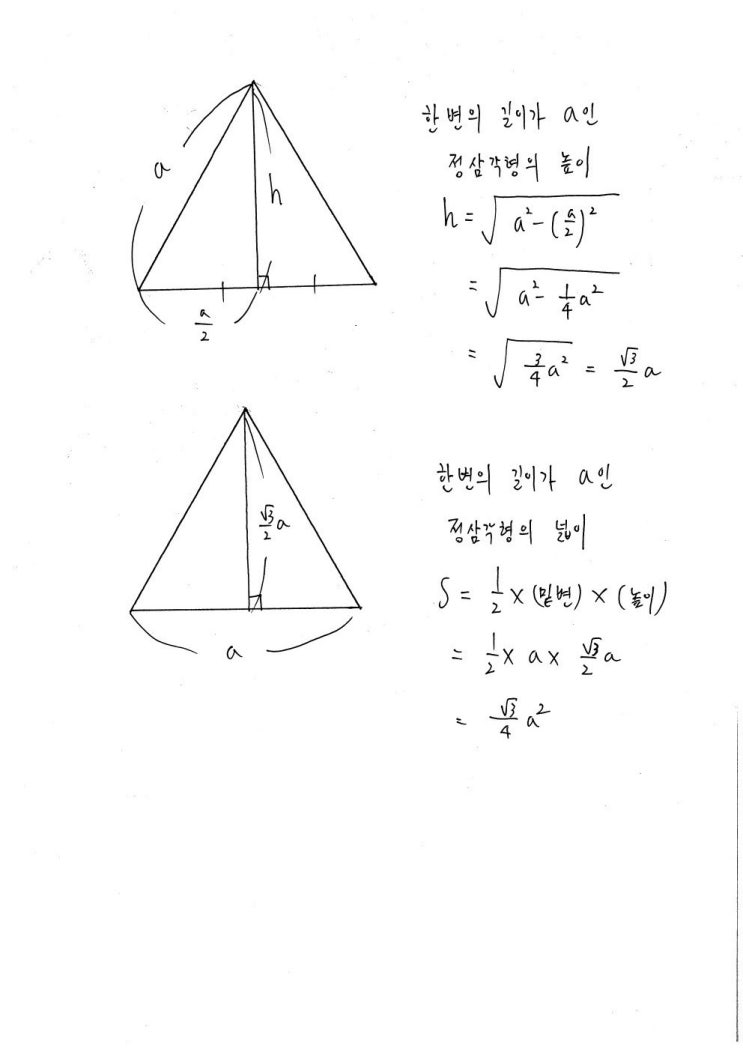 a
h
a/2
한 변의 길이가 a인
정삼각형의 높이
h = √(a² - (a/2)²)
= √(a² - 1/4 a²)
= √(3/4 a²) = √3/2 a
√3/2 a
a
한변의 길이가 a인
정삼각형의 넓이
S = 1/2 × (밑변) × (높이)
= 1/2 × a × √3/2 a
= √3/4 a²